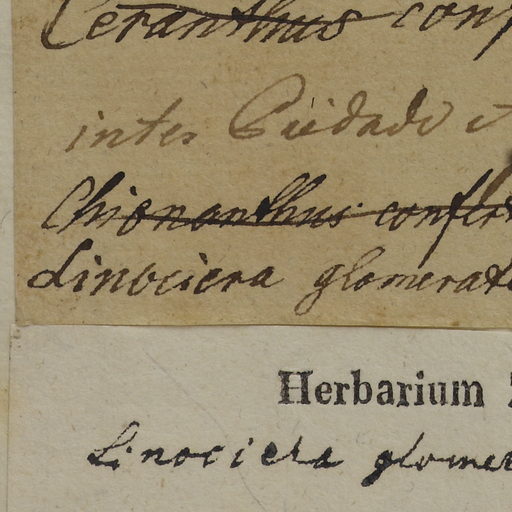 Ceranthus conf
inter Piedade et
Chionanthus confer
Linociera glomerat
Herbarium
Linociera glomer